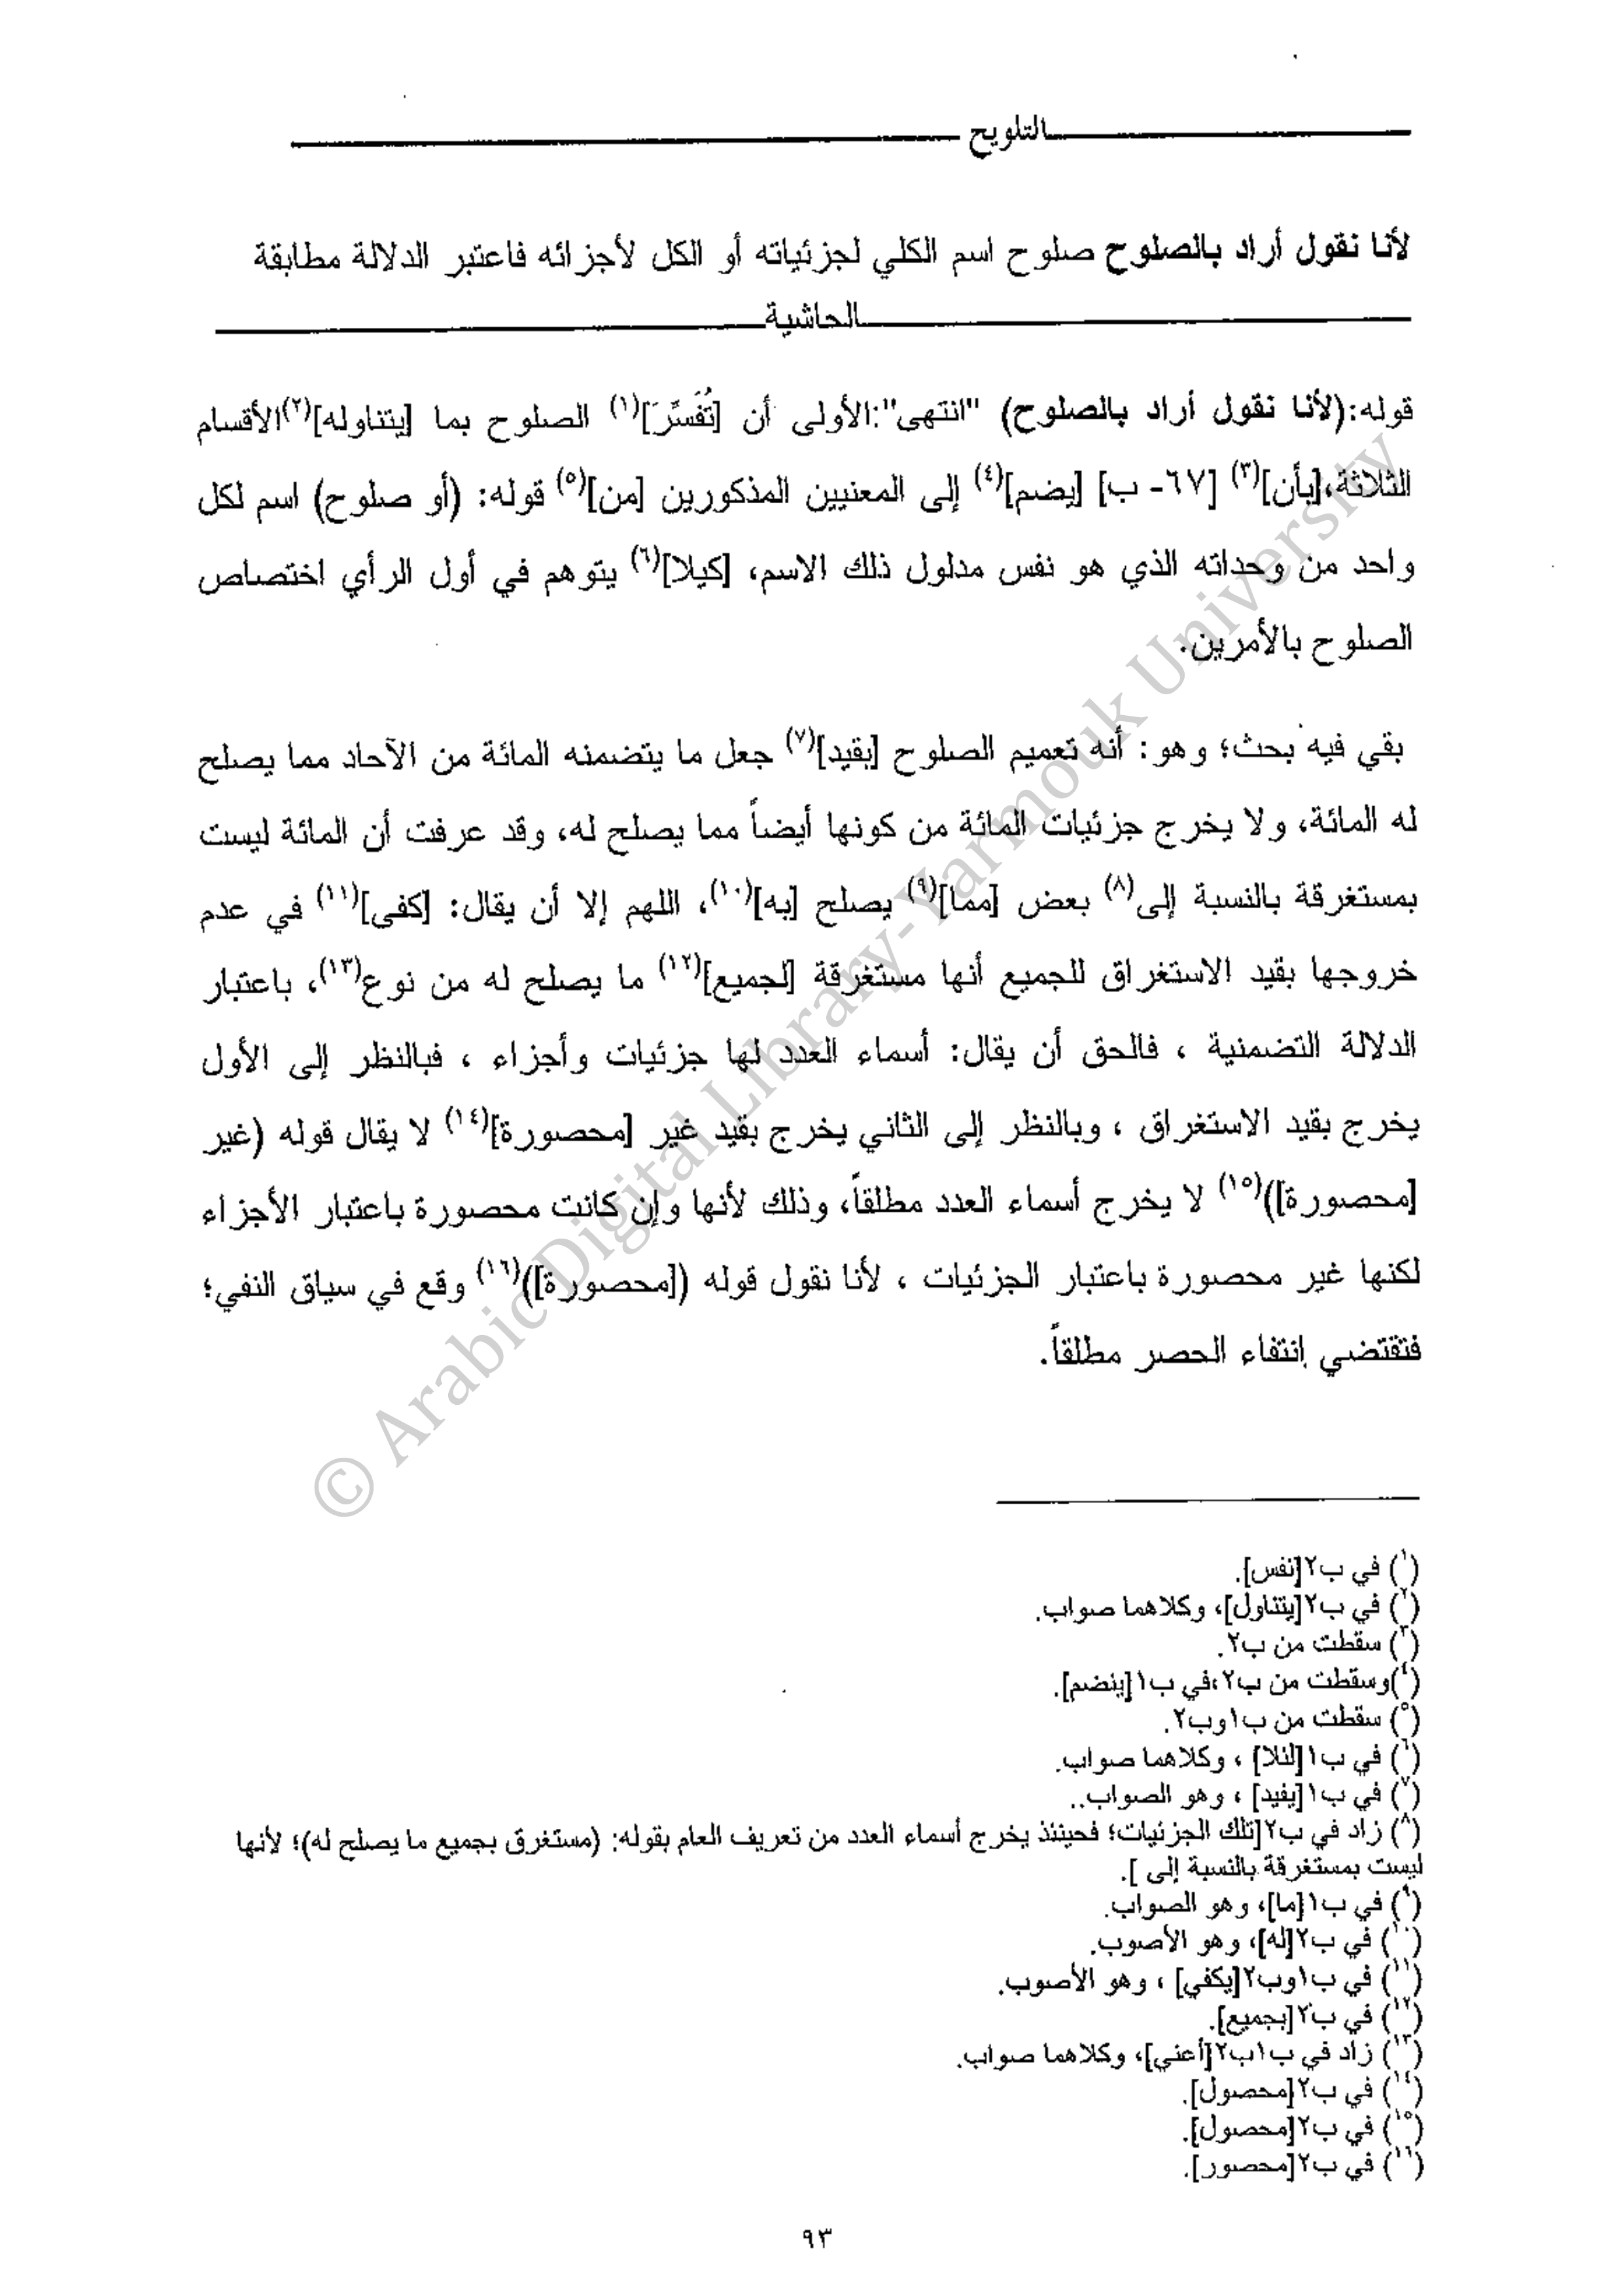 التلويح
لأنا نقول أراد بالصلوح صلوح اسم الكلي لجزئياته أو الكل لأجزائه فاعتبر الدلالة مطابقة
الحاشية
قوله:(لأنا نقول أراد بالصلوح) "انتهى":الأولى أن [تُفَسِّرَ](١) الصلوح بما [يتناوله](٢)الأقسام
الثلاثة،[بأن](٣) [٦٧- ب] [يضم](٤) إلى المعنيين المذكورين [من](٥) قوله: (أو صلوح) اسم لكل
واحد من وحداته الذي هو نفس مدلول ذلك الاسم، [كيلا](٦) يتوهم في أول الرأي اختصاص
الصلوح بالأمرين.
بقي فيه بحث؛ وهو: أنه تعميم الصلوح [بقيد](٧) جعل ما يتضمنه المائة من الآحاد مما يصلح
له المائة، ولا يخرج جزئيات المائة من كونها أيضاً مما يصلح له، وقد عرفت أن المائة ليست
بمستغرقة بالنسبة إلى(٨) بعض [مما](٩) يصلح [به](١٠)، اللهم إلا أن يقال: [كفى](١١) في عدم
خروجها بقيد الاستغراق للجميع أنها مستغرقة [لجميع](١٢) ما يصلح له من نوع(١٣)، باعتبار
الدلالة التضمنية ، فالحق أن يقال: أسماء العدد لها جزئيات وأجزاء ، فبالنظر إلى الأول
يخرج بقيد الاستغراق ، وبالنظر إلى الثاني يخرج بقيد غير [محصورة](١٤) لا يقال قوله (غير
[محصورة])(١٥) لا يخرج أسماء العدد مطلقاً، وذلك لأنها وإن كانت محصورة باعتبار الأجزاء
لكنها غير محصورة باعتبار الجزئيات ، لأنا نقول قوله ([محصورة])(١٦) وقع في سياق النفي؛
فتقتضي إنتفاء الحصر مطلقاً.
(١) في ب٢[نفس].
(٢) في ب٢[يتناول]، وكلاهما صواب.
(٣) سقطت من ب٢.
(٤)وسقطت من ب٢،في ب١[ينضم].
(٥) سقطت من ب١وب٢.
(٦) في ب١[لئلا] ، وكلاهما صواب.
(٧) في ب١[يفيد] ، وهو الصواب..
(٨) زاد في ب٢[تلك الجزئيات؛ فحينئذ يخرج أسماء العدد من تعريف العام بقوله: (مستغرق بجميع ما يصلح له)؛ لأنها
ليست بمستغرقة بالنسبة إلى ].
(٩) في ب١[ما]، وهو الصواب.
(١٠) في ب٢[له]، وهو الأصوب.
(١١) في ب١وب٢[يكفي] ، وهو الأصوب.
(١٢) في ب٢[بجميع].
(١٣) زاد في ب١ب٢[أعني]، وكلاهما صواب.
(١٤) في ب٢[محصول].
(١٥) في ب٢[محصول].
(١٦) في ب٢[محصور].
٩٣
© Arabic Digital Library-Yarmouk University